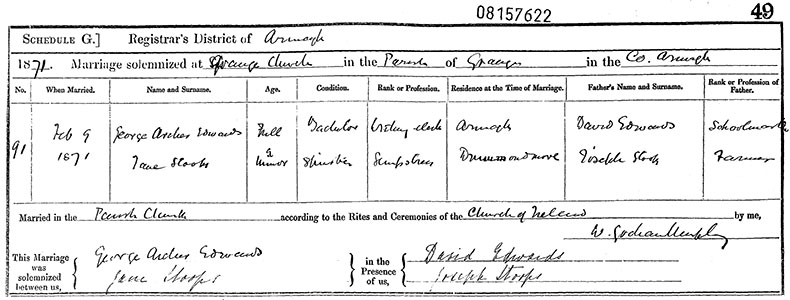 08157622
49
SCHEDULE G.] Registrar's District of Armagh
1871. Marriage solemnized at Grange Church in the Parish of Grange in the Co. Armagh
No. When Married. Name and Surname. Age. Condition. Rank or Profession. Residence at the Time of Marriage. Father's Name and Surname. Rank or Profession of Father.
91 Feb 9 George Archer Edwards Full Bachelor clerk Armagh David Edwards Schoolmaster
1871 Jane Stoops a minor Spinster Sempstress Drummondmore Joseph Stoops Farmer
Married in the Parish Church according to the Rites and Ceremonies of the Church of Ireland by me,
W.
This Marriage was solemnized between us, George Archer Edwards in the Presence of us, David Edwards
Jane Stoops Joseph Stoops